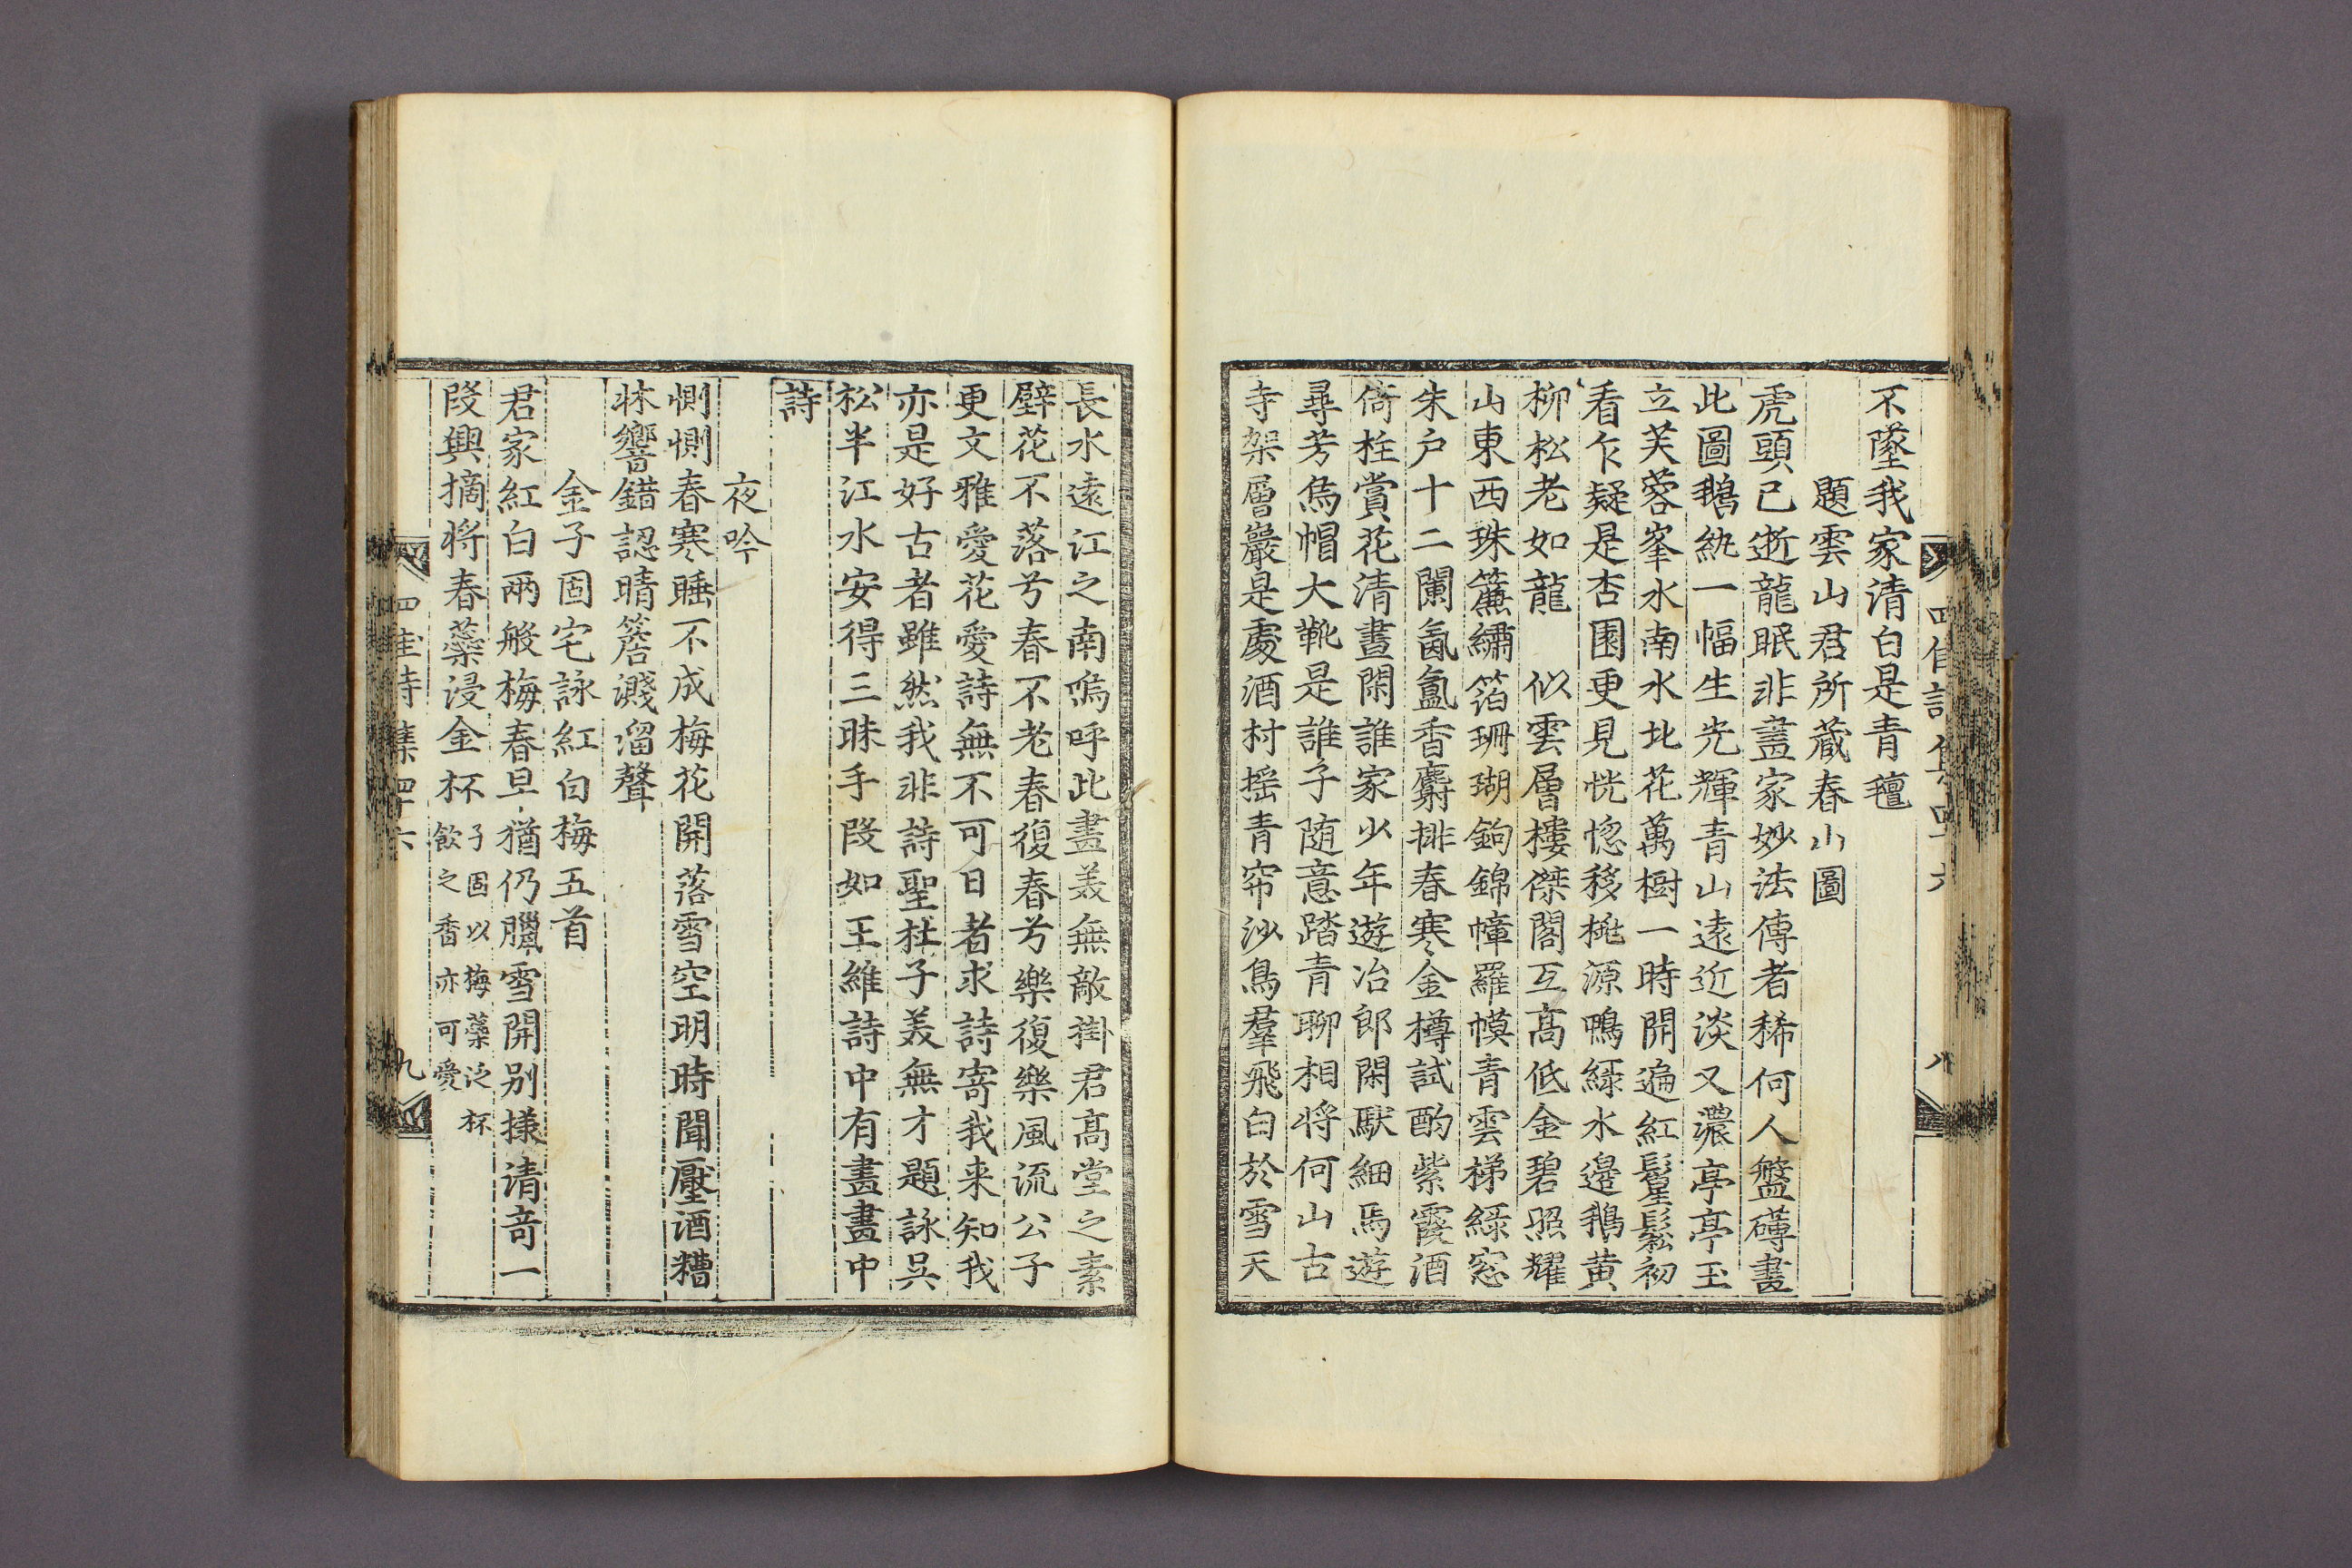 不墜我家清白是青氊
題雲山君所藏春山圖
虎頭已逝龍眠非畫家妙法傳者稀何人盤礴畫
此圖鵝紈一幅生光輝青山遠近淡又濃亭亭玉
立芙蓉峯水南水北花萬樹一時開遍紅鬖鬆初
看乍疑是杏園更見恍惚移桃源鴨綠水邊鵝黃
柳松老如龍 似雲層樓傑閣互高低金碧照耀
山東西珠簾繡箔珊瑚鉤錦幛羅幙青雲梯綠窓
朱户十二闌氤氳香麝排春寒金樽試酌紫霞酒
倚柱賞花清晝閑誰家少年遊冶郎閑馱細馬遊
尋芳烏帽大靴是誰子随意踏青聊相将何山古
寺架層巖是處酒村搖青帘沙鳥羣飛白於雪天
四佳詩集四十六
八
長水遠江之南嗚呼此畫美無敵掛君高堂之素
壁花不落兮春不老春復春兮樂復樂風流公子
更文雅愛花愛詩無不可日者求詩寄我来知我
亦是好古者雖然我非詩聖杜子美無才題詠吳
松半江水安得三昧手段如王維詩中有畫畫中
詩
夜吟
惻惻春寒睡不成梅花開落雪空明時聞壓酒糟
牀響錯認晴簷濺溜聲
金子固宅詠紅白梅五首
君家紅白兩般梅春旦猶仍臘雪開别㨾清奇一
段興摘将春蘂浸金杯 子固以梅蘂泛杯
飲之香亦可愛
四佳詩集四十六
九